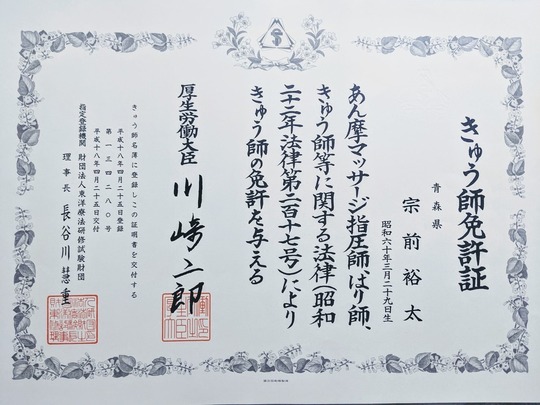 きゅう師免許証
青森県
宗前裕太
昭和六十年三月二十九日生
あん摩マッサージ指圧師、はり師、
きゅう師等に関する法律(昭和
二十二年法律第二百十七号)により
きゅう師の免許を与える
厚生労働大臣 川崎二郎
きゅう師名簿に登録しこの証明書を交付する
平成十八年四月二十五日登録
第一三四二八〇号
平成十八年四月二十五日交付
指定登録機関 財団法人東洋療法研修試験財団
理事長 長谷川慧重